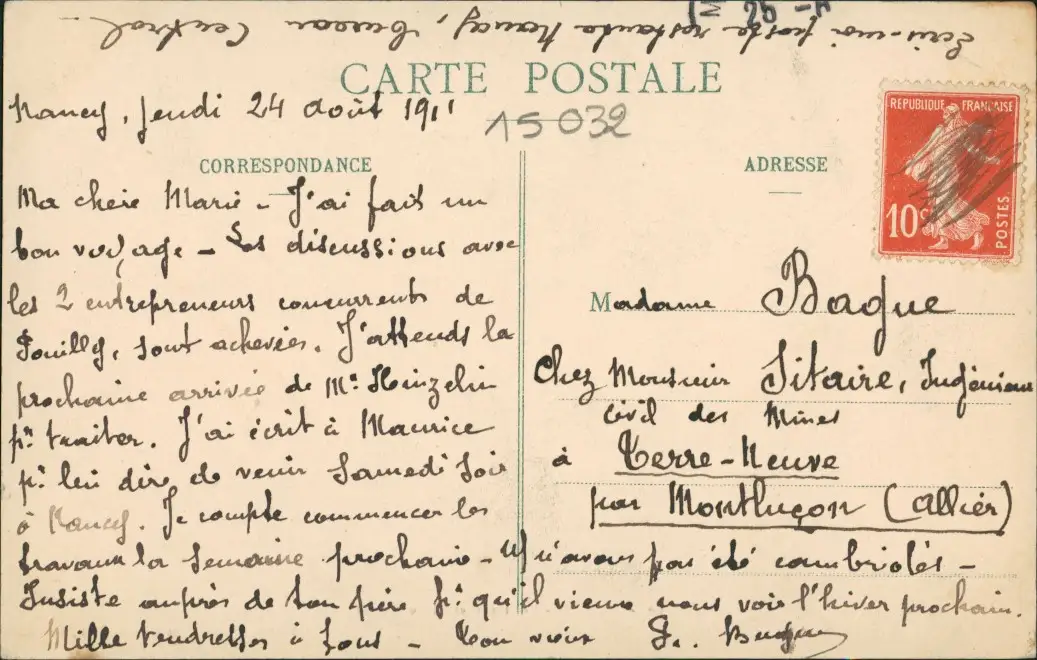 Ecris-moi poste restante Nancy, bureau Central
25
CARTE POSTALE
Nancy, Jeudi 24 août 1911
15032
CORRESPONDANCE
Ma chère Marie - J'ai fait un
bon voyage - Les discussions avec
les 2 entrepreneurs concurrents de
Pouilly, sont achevées. J'attends la
prochaine arrivée de Mr Hinzelin
pr traiter. J'ai écrit à Maurice
pr lui dire de venir Samedi soir
à Nancy. Je compte commencer les
travaux la semaine prochaine - n'avons pas été cambriolés -
Insiste auprès de ton père pr qu'il vienne nous voir l'hiver prochain.
Mille tendresses à tous - Ton vieux
ADRESSE
REPUBLIQUE FRANÇAISE
10c
POSTES
Madame Bague
Chez Monsieur Sitaire, Ingénieur
Civil des Mines
à Terre-Neuve
par Montluçon (Allier)